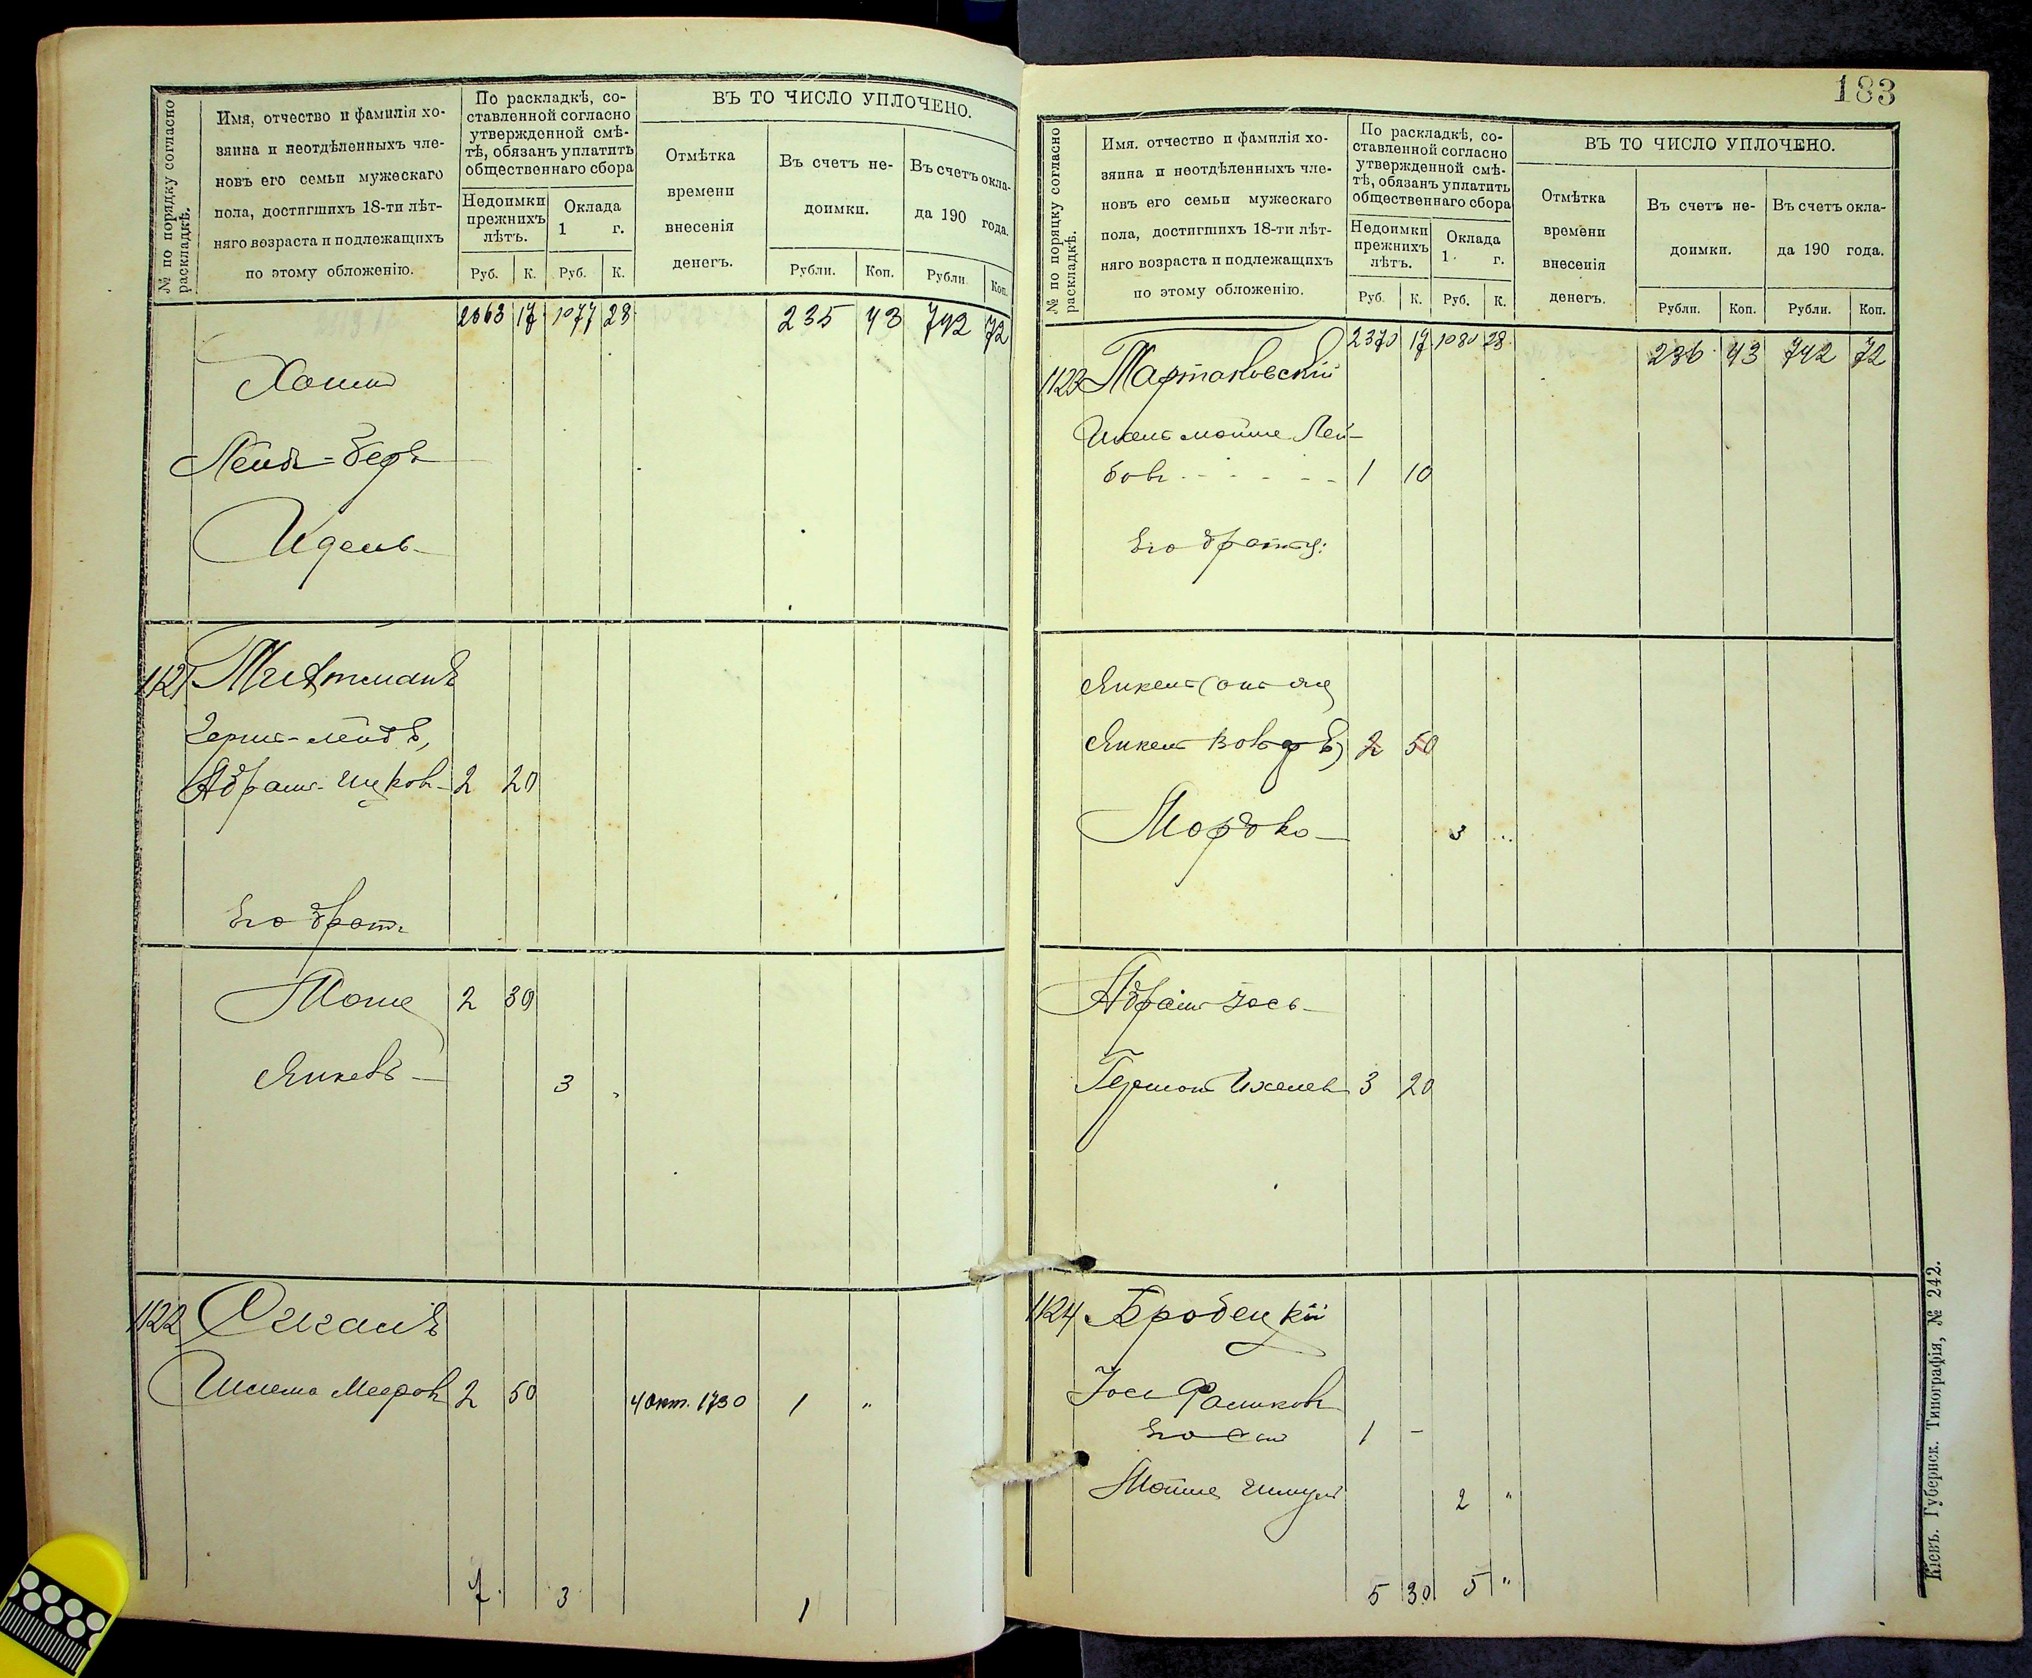 № по порядку согласно раскладкѣ.
Имя, отчество и фамилія хо-
зяина и неотдѣленныхъ чле-
новъ его семьи мужескаго
пола, достигшихъ 18-ти лѣт-
няго возраста и подлежащихъ
по этому обложенію.
По раскладкѣ, со-
ставленной согласно
утвержденной смѣ-
тѣ, обязанъ уплатить
общественнаго сбора
Недоимки
прежнихъ
лѣтъ.
Оклада
1 г.
Руб. К. Руб. К.
ВЪ ТО ЧИСЛО УПЛОЧЕНО.
Отмѣтка
времени
внесенія
денегъ.
Въ счетъ не-
доимки.
Рубли. Коп.
Въ счетъ окла-
да 190 года.
Рубли Коп.
2363 17 1077 28 235 43 742 72
Хаимъ
Лейбъ-Беръ
Идель
1121
Герш-Лейбъ,
Абрам-Ицков 2 20
Его братъ
Моше 2 30
Янкевъ 3 "
1122
Шлема Мееровъ 2 50 4 окт. 1730 1 "
7 3 1
183
№ по порядку согласно раскладкѣ.
Имя, отчество и фамилія хо-
зяина и неотдѣленныхъ чле-
новъ его семьи мужескаго
пола, достигшихъ 18-ти лѣт-
няго возраста и подлежащихъ
по этому обложенію.
По раскладкѣ, со-
ставленной согласно
утвержденной смѣ-
тѣ, обязанъ уплатить
общественнаго сбора
Недоимки
прежнихъ
лѣтъ.
Оклада
1 г.
Руб. К. Руб. К.
ВЪ ТО ЧИСЛО УПЛОЧЕНО.
Отмѣтка
времени
внесенія
денегъ.
Въ счетъ не-
доимки.
Рубли. Коп.
Въ счетъ окла-
да 190 года.
Рубли. Коп.
2370 17 1080 28 236 43 742 72
1123 Тартаковскій
Ихелъ Мойше Лей-
бовъ 1 10
Его братья:
Янкель (онъ же
Янкель Вовъ 2 50
Мордко 3 "
Абрамъ Іось
Гершонъ Ихелев 3 20
1124 Бродецкій
Іось Фаликовъ
Его сын 1 -
Мойше 2 "
5 30 5 "
Кіевъ. Губернск. Типографія, № 242.